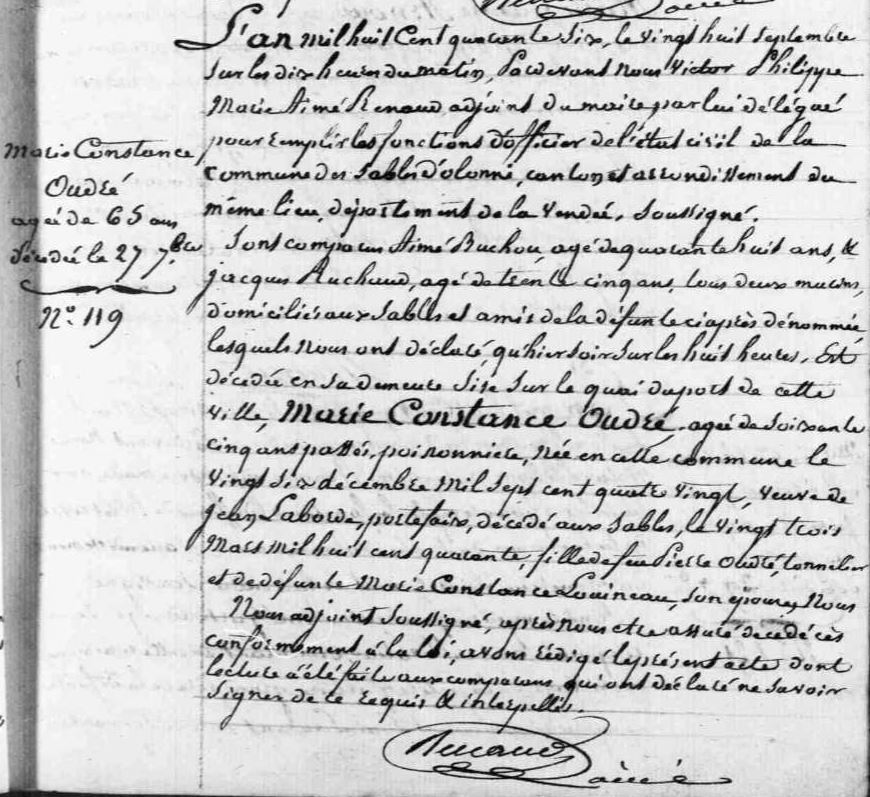 Marie Constance
Oudré
agée de 65 ans
décédée le 27 7.bre
N.o 119
L'an mil huit Cent quarante Six, le vingt huit Septembre
Sur les dix heures du matin, Pardevant nous Victor Philippe
Marie Aimé Renaud, adjoint du maire par lui délégué
pour Remplir les fonctions d'officier de l'état civil de la
Commune des Sables d'olonne, canton et arrondissement du
même lieu, département de la Vendée, Soussigné.
Sont comparus Aimé Buchou, agé de quarante huit ans, &
jacques Auchaud, agé de trente cinq ans, tous deux marins,
domiciliés aux Sables et amis de la défunte ci après dénommée
lesquels nous ont déclaré, qu'hier soir Sur les huit heures, Est
décédée en Sa demeure Sise Sur le quai du port de cette
ville, Marie Constance Oudré, agée de Soixante
cinq ans passés, poissonnière, née en cette commune le
vingt Six décembre mil Sept cent quatre vingt, veuve de
jean Laborde, portefaix, décédé aux Sables, le vingt trois
Mars mil huit cent quarante, fille de feu Pierre Oudré, tonnelier
et de défunte Marie Constance Louineau, Son épouse, Nous
Nous adjoint Soussigné, après nous etre assuré de ce décès
conformément à la loi, avons rédigé le présent acte dont
lecture a été faite aux comparans, qui ont déclaré ne Savoir
Signer de ce Requis & interpellés.
Renaud